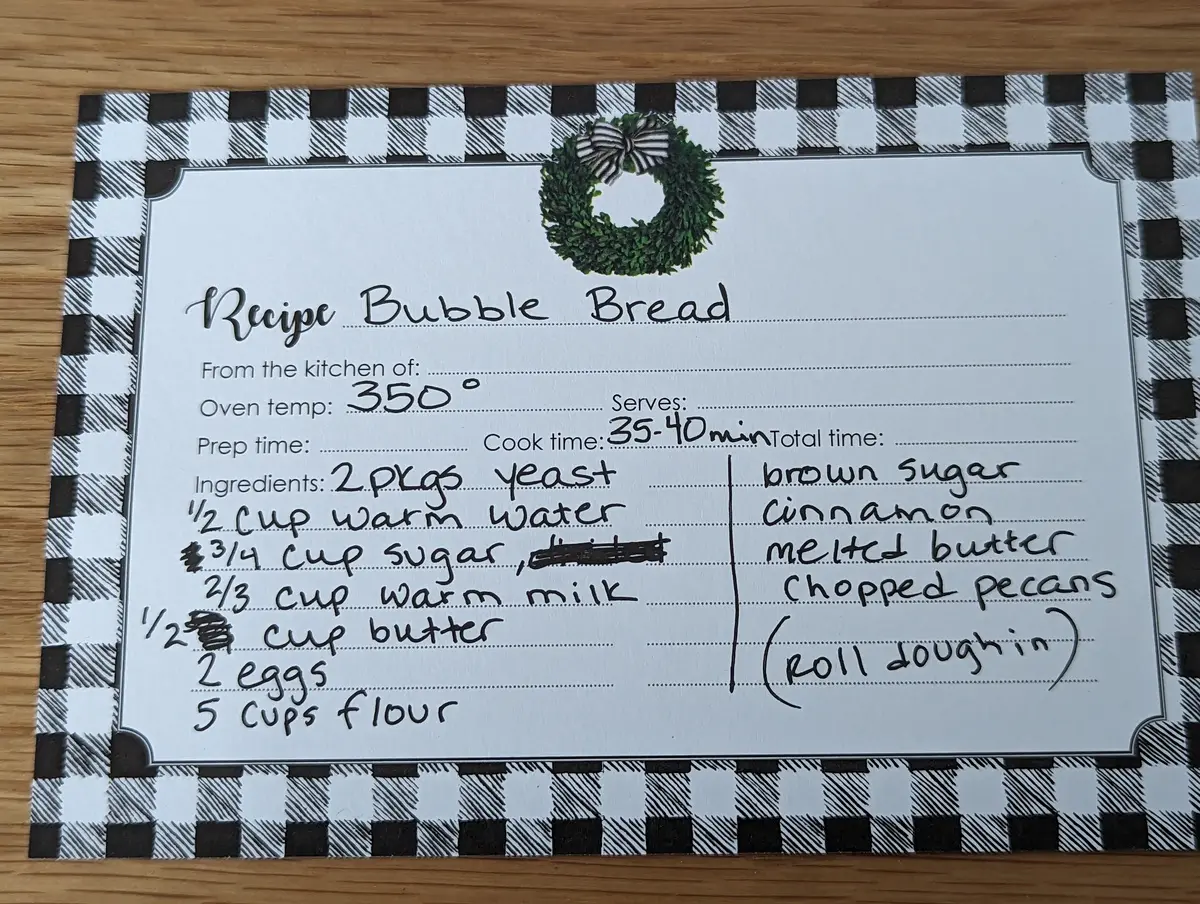 Recipe Bubble Bread
From the kitchen of:
Oven temp: 350° Serves:
Prep time: Cook time: 35-40 min Total time:
Ingredients: 2 pkgs yeast
1/2 cup warm water
3/4 cup sugar,
2/3 cup warm milk
1/2 cup butter
2 eggs
5 cups flour
brown sugar
cinnamon
melted butter
chopped pecans
(Roll dough in)